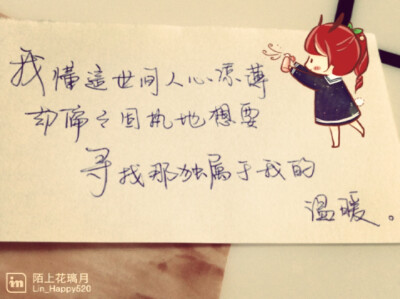 我懂這世间人心凉薄
却偏之固执地想要
寻找那独属于我的
温暖。
in 陌上花璃月
Lin_Happy520